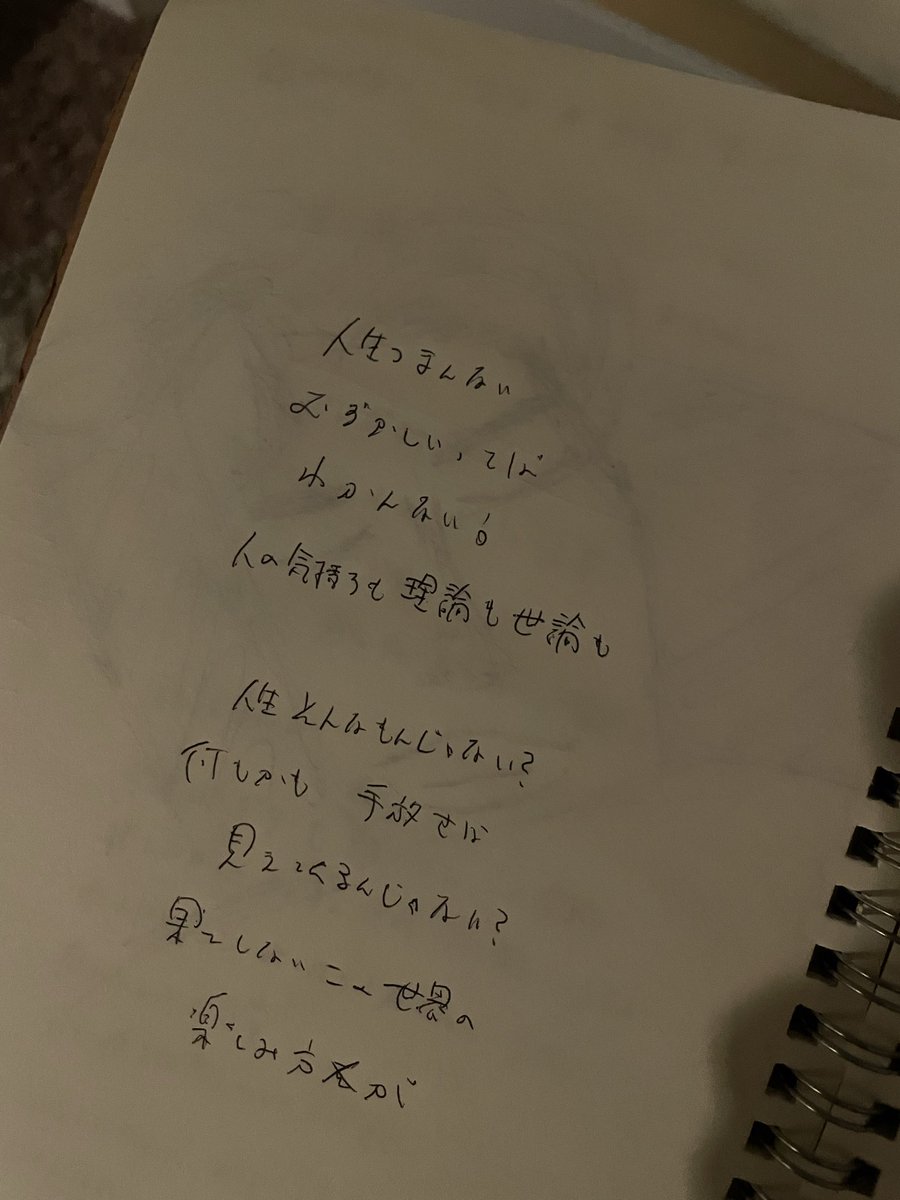 人生つまんない
むずかしい、てば
わかんない!
人の気持ちも理論も世論も
人生そんなもんじゃない?
何もかも 手放せば
見えてくるんじゃない?
果てしないこの世界の
楽しみ方が